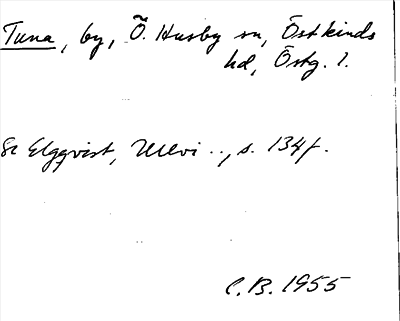 Tuna, by, Ö. Husby sn, Östkinds
hd, Östg. l.
Se Elgqvist, Ullvi .., s. 134f.
C.B. 1955